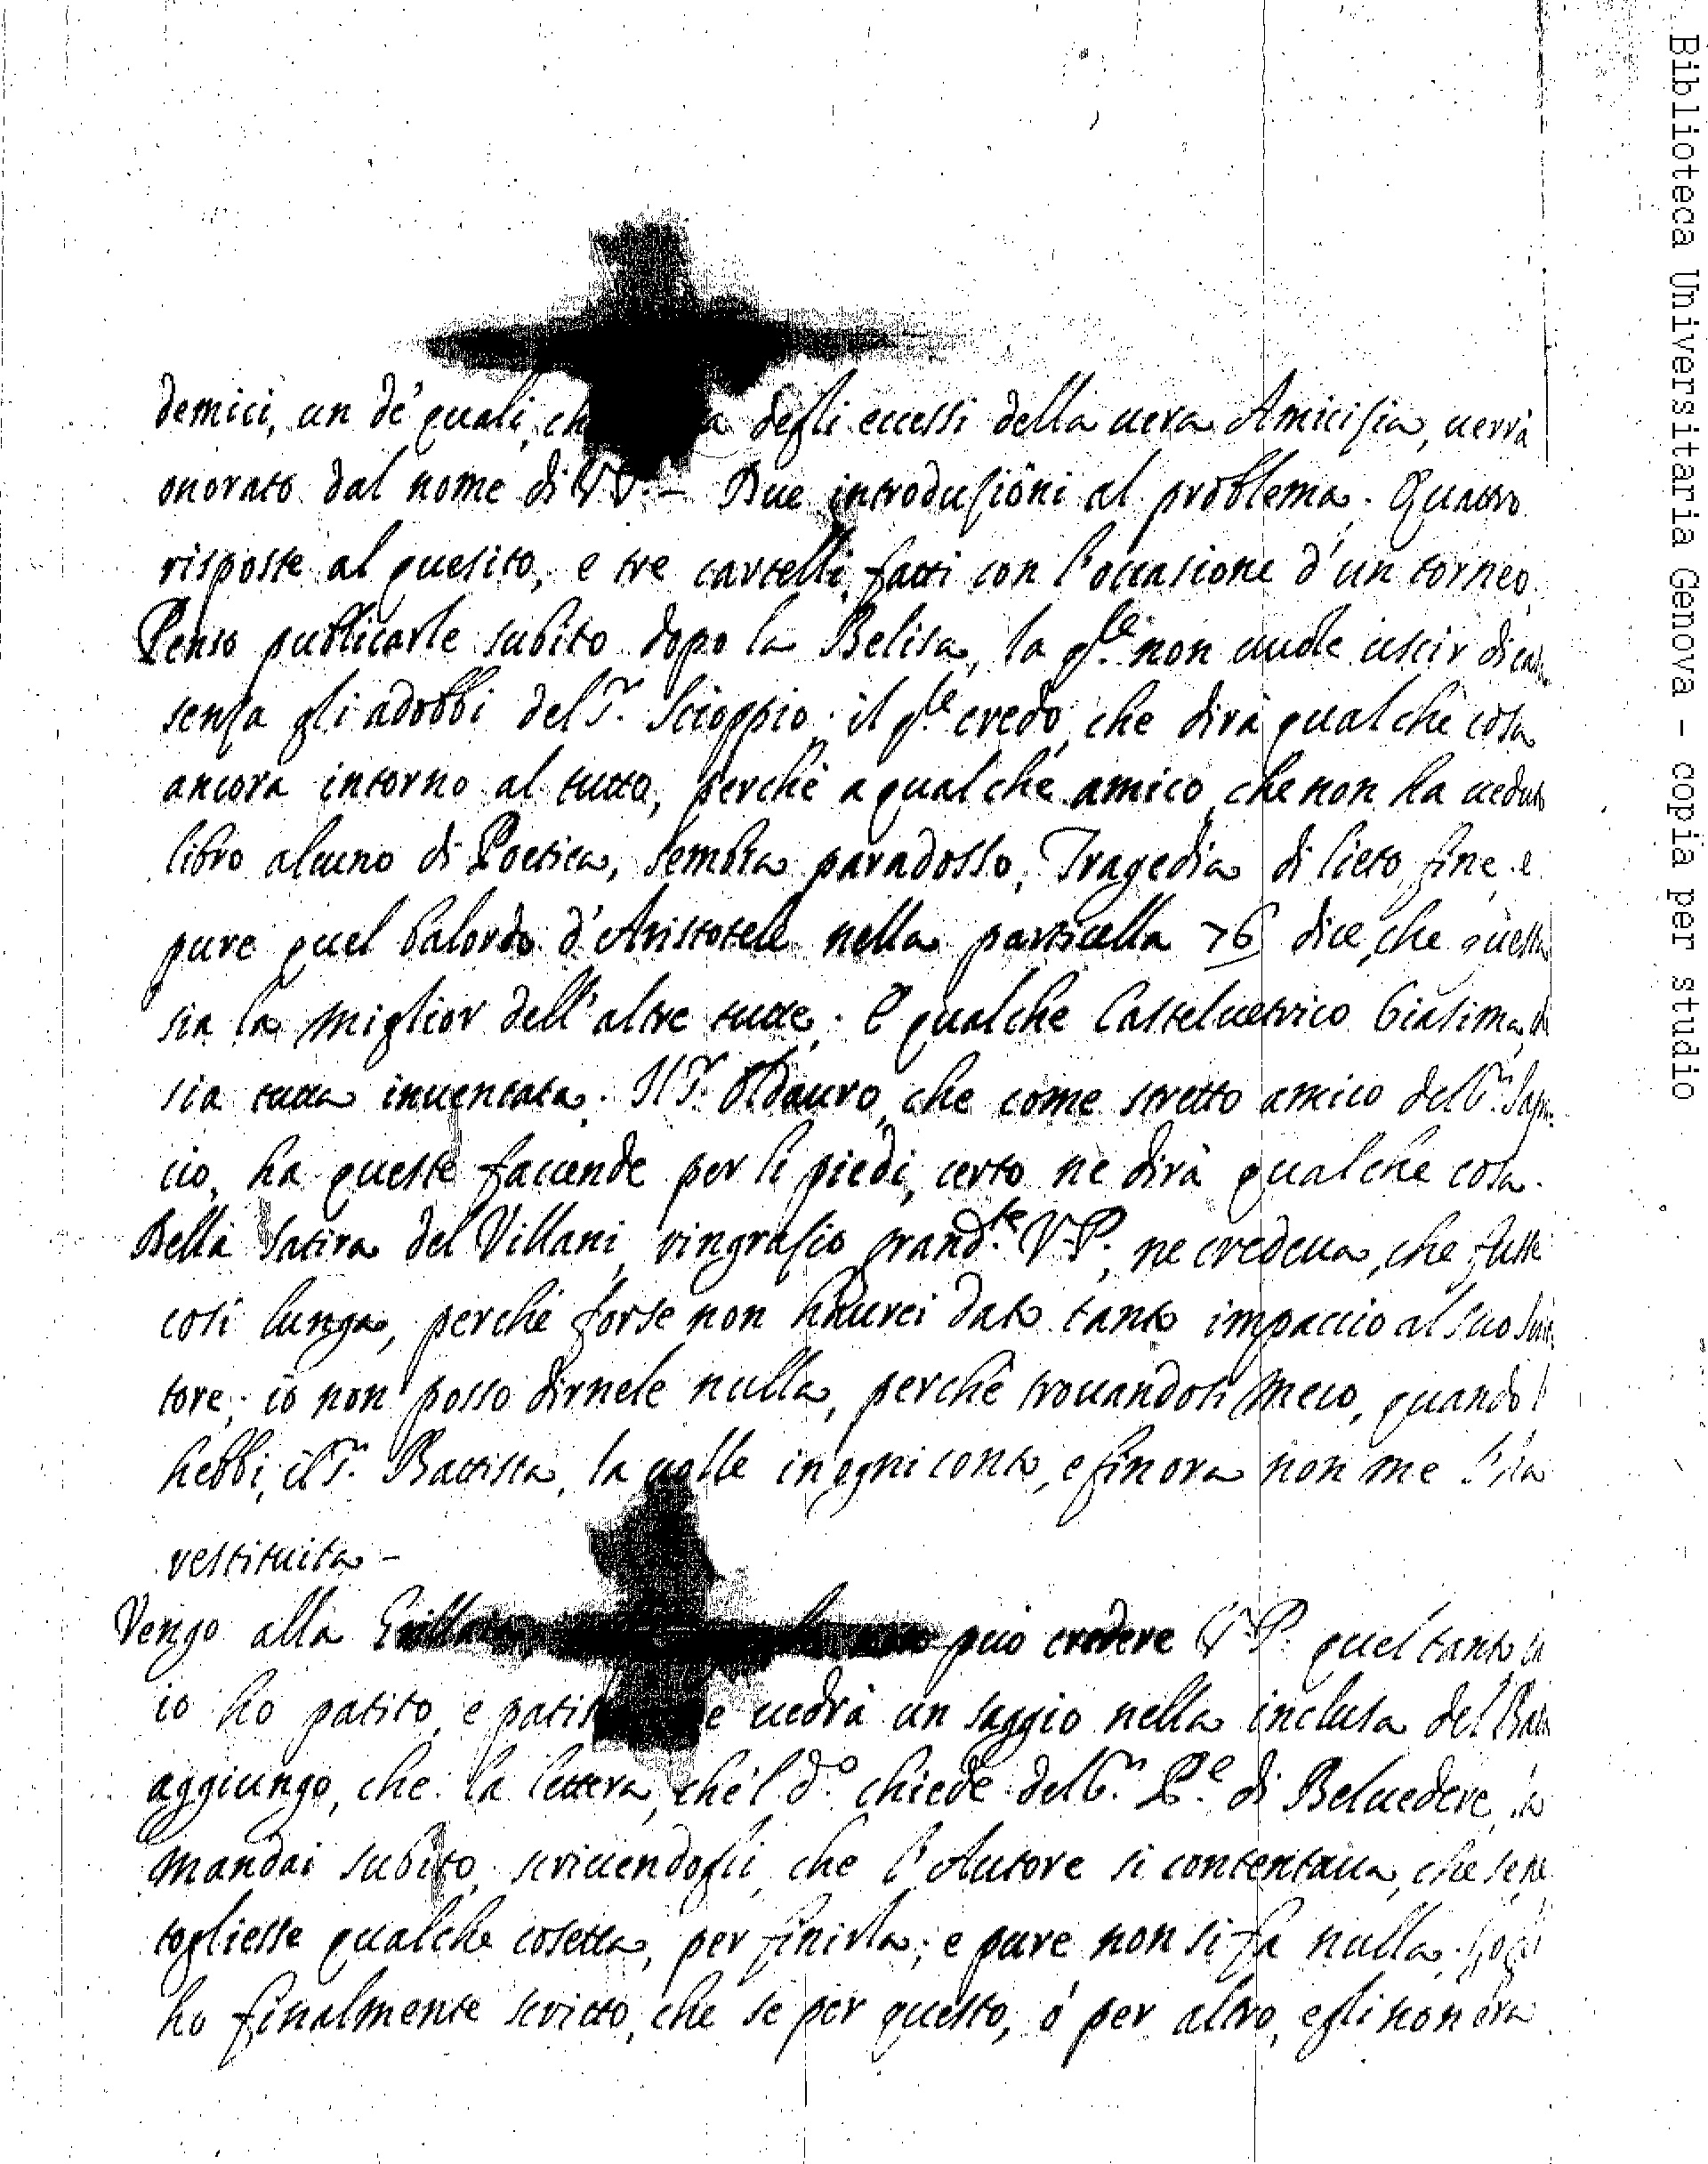 demici, un de' quali, ch degli eccessi della uera Amicisia, uerrà
onorato dal nome di V.P. – Due introdusioni al problema. Quattro
risposte al quesito, e tre cartelli, fatti con l'occasione d'un torneo.
Penso publicarle subito dopo la Belisa, la q.le non uuole uscir di
sensa gli adobbi del S.r Scioppio; il q.le credo, che dirà qualche cosa
ancora intorno al tutto, perché a qualche amico, che non ha ueduto
libro alcuno di Poetica, sembra paradosso, Tragedia di lieto fine, e
pure quel balordo d'Aristotele nella particella 76 dice, che questa
sia la miglior dell'altre tutte. E qualche Casteluetrico biasima,
sia tutta inuentata. Il S.r Oldauro, che come stretto amico del S.r
cio, ha queste facende per li piedi, certo ne dirà qualche cosa.
Bella Satira del Villani, ringrasio grand.te V.P., ne credeua, che fusse
così lunga, perché forse non haurei dato tanto impaccio al suo
tore; io non posso dirnele nulla, perché trouandosi meco, quando l'
hebbi, il S.r Battista, la uolle in ogni conto, e finora non me l'ha
restituita –
Vengo alla può credere V.P. quel tanto
io ho patito, e uedrà un saggio nella inclusa del
aggiungo, che la lettera, che 'l d.o chiede del S.r P.e di Beluedere, la
mandai subito, scriuendogli, che l'Autore si contentaua, che se ne
togliesse qualche cosetta, per finirla; e pure non si fa nulla.
ho finalmente scritto, che se per questo, ò per altro, egli non era
Biblioteca Universitaria Genova - copia per studio